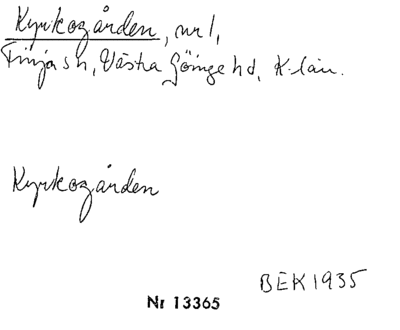 Kyrkogården, nr 1,
Finja sn, Västra Göinge hd, K-län.
Kyrkogården
BEK 1935
Nr 13365